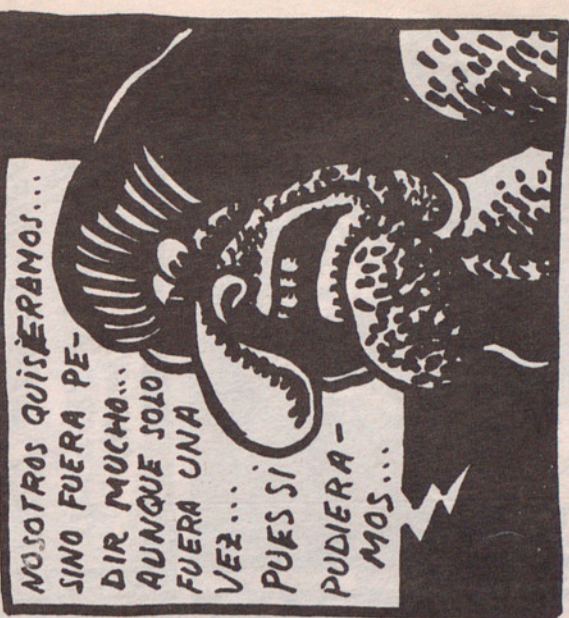 NOSOTROS QUISIERAMOS...
SINO FUERA PE-
DIR MUCHO...
AUNQUE SOLO
FUERA UNA
VEZ...
PUES SI
PUDIERA-
MOS...